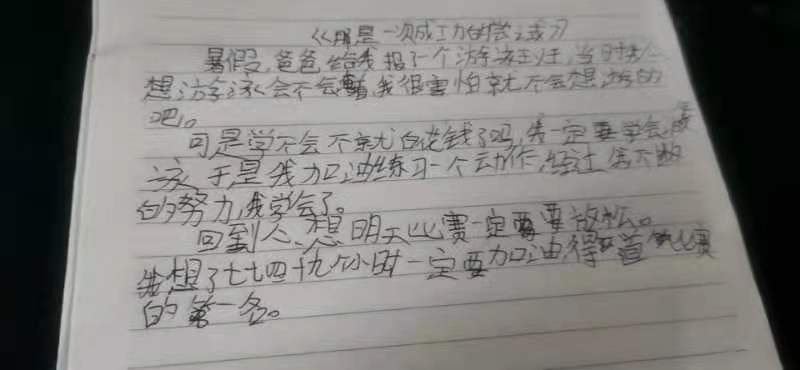 《那是一次成功的尝试》
暑假,爸爸给我报了一个游泳班,当时我
想游泳会不会,我很害怕就不会想游的
吧。
可是学不会不就白花钱了吗,我一定要学会
泳于是我加油练习一个动作,经过不断
的努力,我学会了。
回到人,想明天比赛一定要要放松。
我想了七七四十九个小时一定要加油得首个比赛
的第一名。